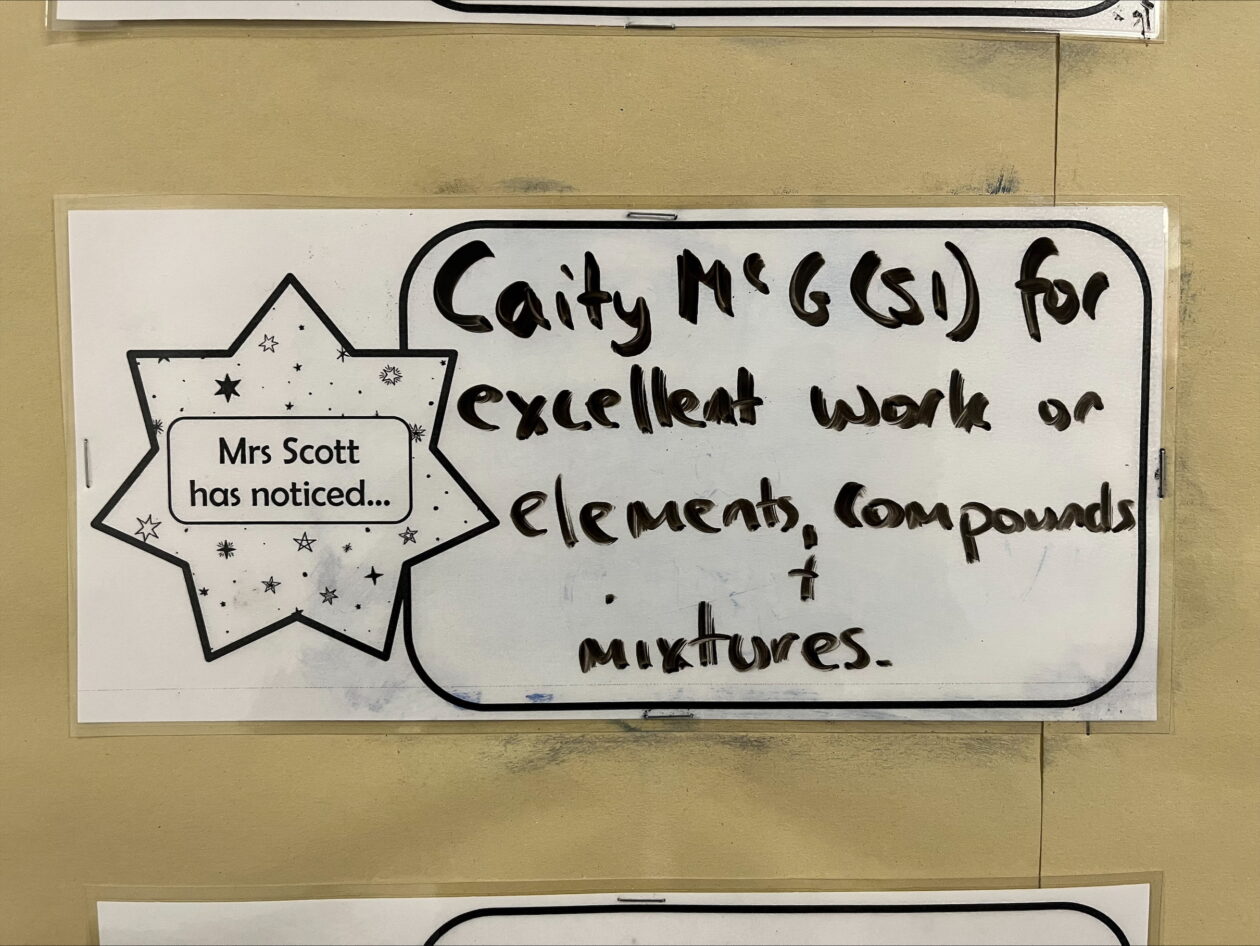 Mrs Scott
has noticed...
Caity McG (S1) for
excellent work on
elements, compounds
+
mixtures.